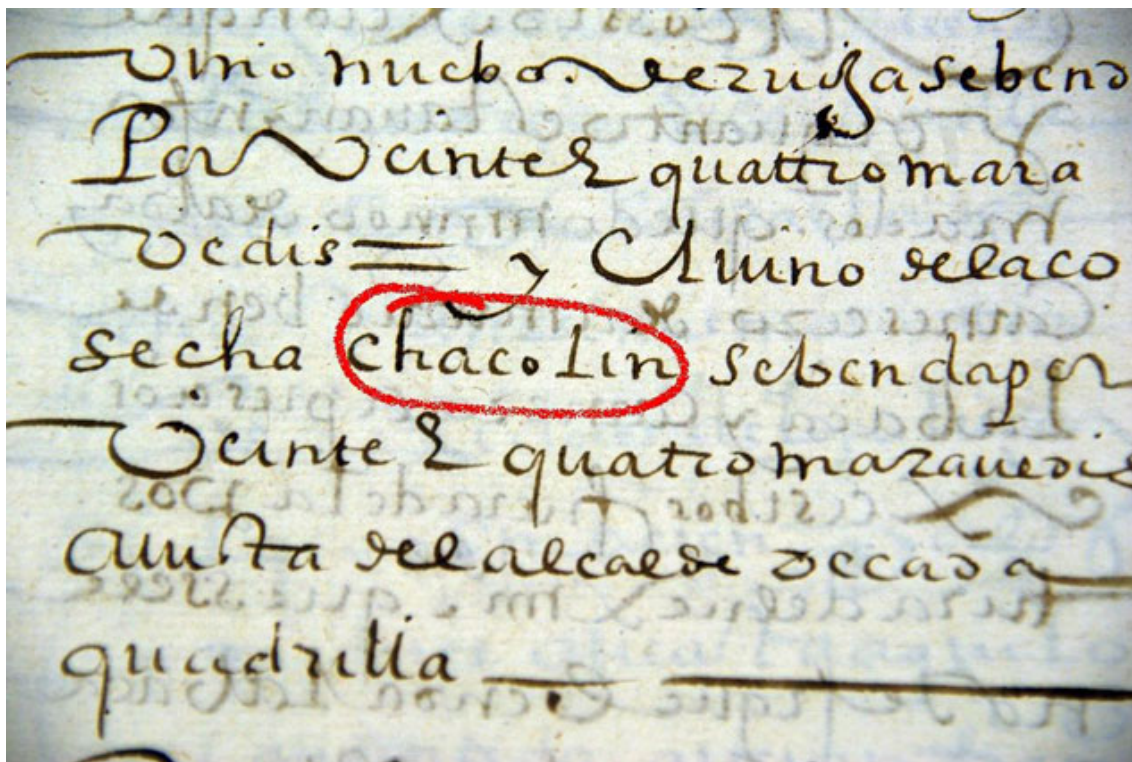 Vino nuebo. de zuiza se bend
Por Veinte & quattro mara
vedis = y El uino de la co
secha chacolin se benda por
Veinte & quatro marauedis
a uista del alcalde de cada
quadrilla